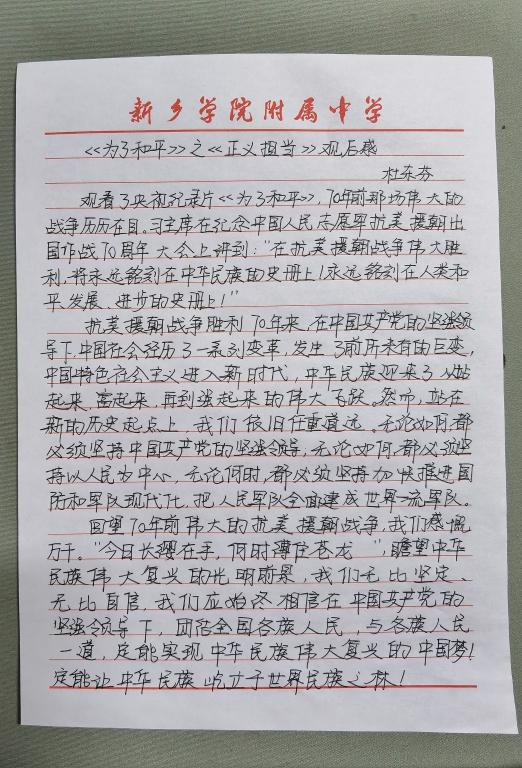 新乡学院附属中学
《为了和平》之《正义担当》观后感
杜东芬
观看了央视纪录片《为了和平》,70年前那场伟大的
战争历历在目。习主席在纪念中国人民志愿军抗美援朝出
国作战70周年大会上评到:"在抗美援朝战争伟大胜
利,将永远铭刻在中华民族的史册上!永远铭刻在人类和
平、发展、进步的史册上!"
抗美援朝战争胜利70年来,在中国共产党的坚强领
导下,中国社会经历了一系列变革,发生了前所未有的巨变,
中国特色社会主义进入新时代,中华民族迎来了从站
起来,富起来,再到强起来的伟大飞跃。然而,站在
新的历史起点上,我们依旧任重道远。无论如何,都
必须坚持中国共产党的坚强领导,无论如何,都必须坚
持以人民为中心,无论何时,都必须坚持加快推进国
防和军队现代化,把人民军队全面建成世界一流军队。
回望70年前伟大的抗美援朝战争,我们感慨
万千。"今日长缨在手,何时薄住苍龙",瞻望中华
民族伟大复兴的光明前景,我们无比坚定、
无比自信,我们应始终相信在中国共产党的
坚强领导下,团结全国各族人民,与各族人民
一道,定能实现中华民族伟大复兴的中国梦!
定能让中华民族屹立于世界民族之林!